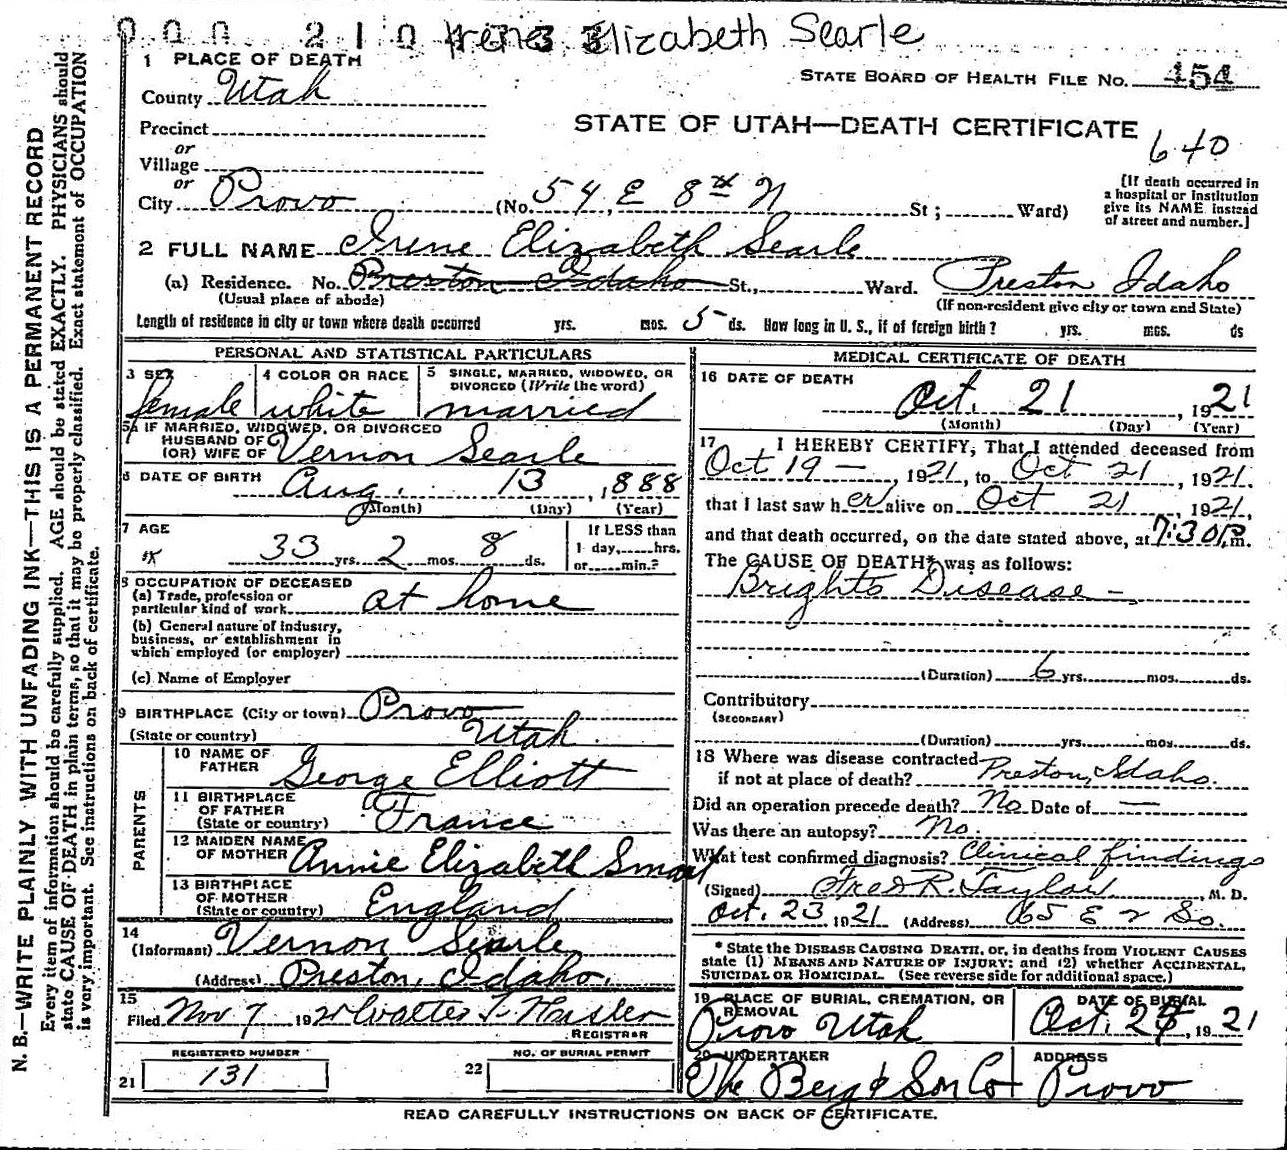 000 210 133 Irene Elizabeth Searle
1 PLACE OF DEATH
STATE BOARD OF HEALTH FILE NO. 454
County Utah
STATE OF UTAH—DEATH CERTIFICATE
640
Precinct
or
Village
or
City Provo (No. 54 E 8th N St; Ward)
[If death occurred in
a hospital or institution
give its NAME instead
of street and number.]
2 FULL NAME Irene Elizabeth Searle
(a) Residence. No. Preston Idaho St., Ward. Preston Idaho
(Usual place of abode) (If non-resident give city or town and State)
Length of residence in city or town where death occurred yrs. mos. 5 ds. How long in U. S., if of foreign birth? yrs. mos. ds
PERSONAL AND STATISTICAL PARTICULARS
3 SEX 4 COLOR OR RACE 5 SINGLE, MARRIED, WIDOWED, OR
DIVORCED (Write the word)
female white married
5A IF MARRIED, WIDOWED, OR DIVORCED
HUSBAND OF
(OR) WIFE OF Vernon Searle
6 DATE OF BIRTH Aug. 13, 1888
(Month) (Day) (Year)
7 AGE If LESS than
33 yrs. 2 mos. 8 ds. 1 day,......hrs.
or......min.?
8 OCCUPATION OF DECEASED
(a) Trade, profession or
particular kind of work at home
(b) General nature of industry,
business, or establishment in
which employed (or employer)
(c) Name of Employer
9 BIRTHPLACE (City or town) Provo
(State or country) Utah.
PARENTS
10 NAME OF
FATHER George Elliott
11 BIRTHPLACE
OF FATHER
(State or country) France
12 MAIDEN NAME
OF MOTHER Annie Elizabeth Smart
13 BIRTHPLACE
OF MOTHER
(State or country) England
14
(Informant) Vernon Searle
(Address) Preston, Idaho.
15
Filed Nov 7 192
REGISTRAR
REGISTERED NUMBER NO. OF BURIAL PERMIT
21 131 22
MEDICAL CERTIFICATE OF DEATH
16 DATE OF DEATH
Oct. 21, 1921
(Month) (Day) (Year)
17 I HEREBY CERTIFY, That I attended deceased from
Oct 19 —, 1921, to Oct 21, 1921.
that I last saw her alive on Oct 21, 1921,
and that death occurred, on the date stated above, at 7:30 P.m.
The CAUSE OF DEATH* was as follows:
Brights Disease —
(Duration) 6 yrs. mos. ds.
Contributory
(SECONDARY)
(Duration) yrs. mos. ds.
18 Where was disease contracted
if not at place of death? Preston, Idaho.
Did an operation precede death? No Date of —
Was there an autopsy? No.
What test confirmed diagnosis? Clinical findings
(Signed) Fred R. Taylor, M. D.
Oct. 23, 1921 (Address) 65 E 2 So.
* State the DISEASE CAUSING DEATH, or, in deaths from VIOLENT CAUSES
state (1) MEANS AND NATURE OF INJURY; and (2) whether ACCIDENTAL,
SUICIDAL OR HOMICIDAL. (See reverse side for additional space.)
19 PLACE OF BURIAL, CREMATION, OR
REMOVAL DATE OF BURIAL
Provo Utah Oct. 1921
20 UNDERTAKER ADDRESS
The Berg & Son Co Provo
READ CAREFULLY INSTRUCTIONS ON BACK OF CERTIFICATE.
N. B.—WRITE PLAINLY WITH UNFADING INK—THIS IS A PERMANENT RECORD
Every item of information should be carefully supplied. AGE should be stated EXACTLY. PHYSICIANS should
state CAUSE OF DEATH in plain terms, so that it may be properly classified. Exact statement of OCCUPATION
is very important. See instructions on back of certificate.